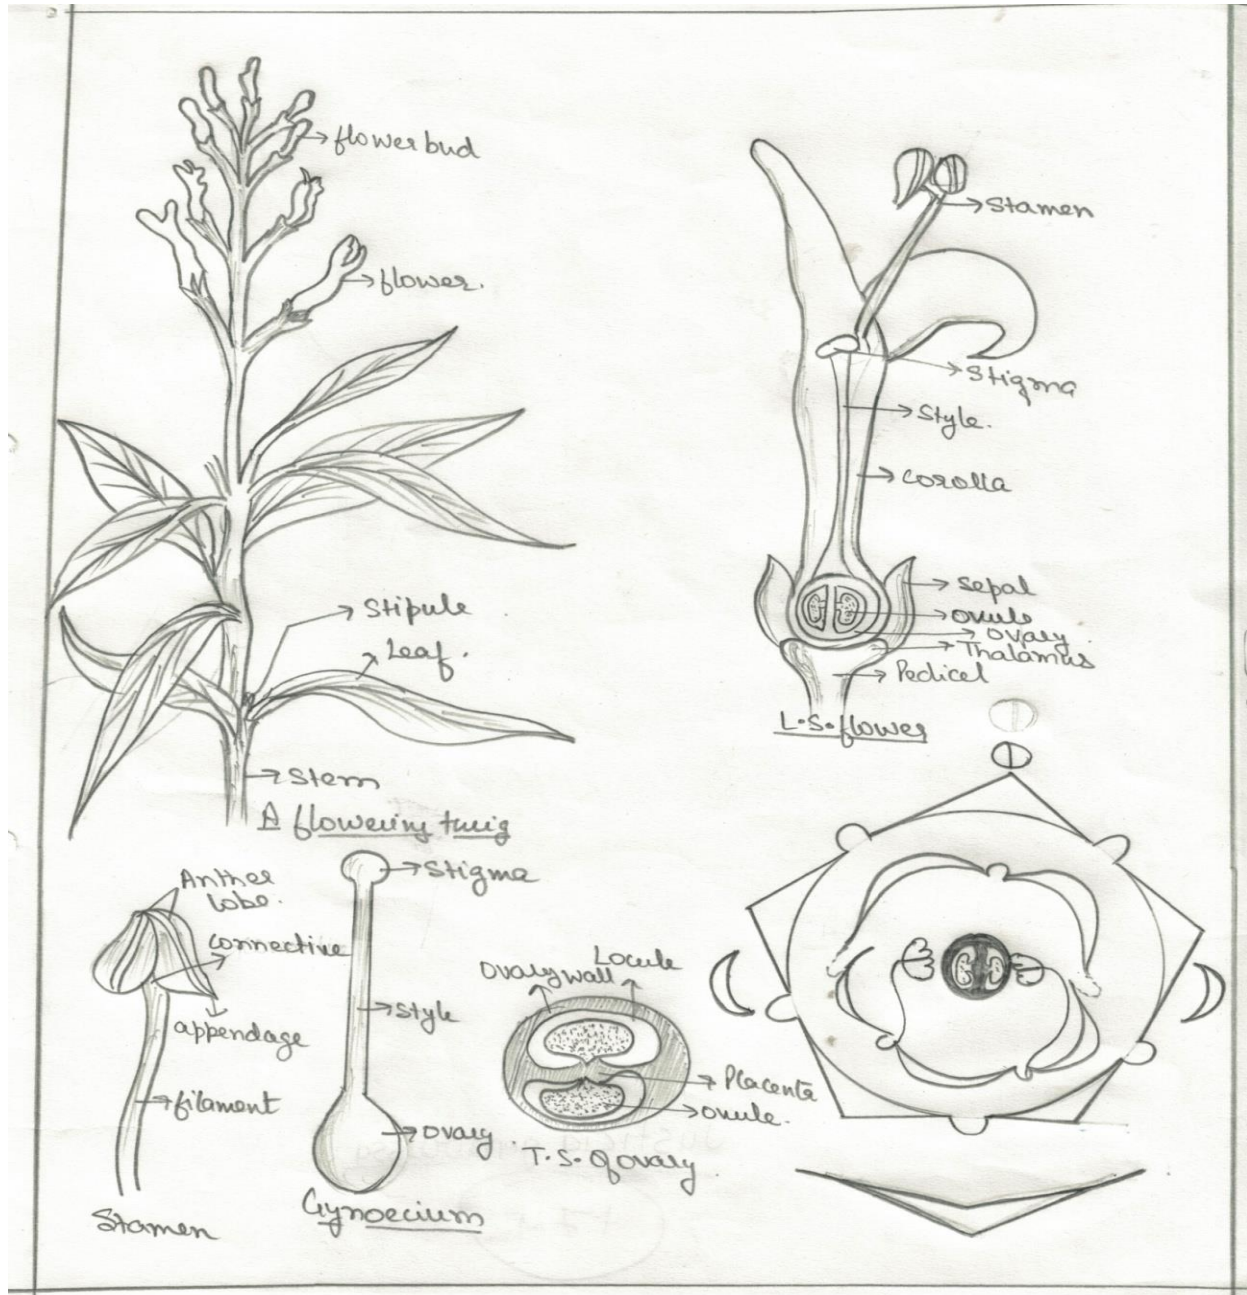 flower bud
flower.
Stipule
Leaf.
Stem
A flowering twig
Stamen
Stigma
Style.
Corolla
Sepal
Ovule
Ovary.
Thalamus
Pedicel
L.S. flower
Anther
lobe.
Connective
appendage
filament
Stamen
Stigma
Style
Ovary.
Gynoecium
Ovary wall
Locule
Placenta
Ovule.
T.S. Of ovary.